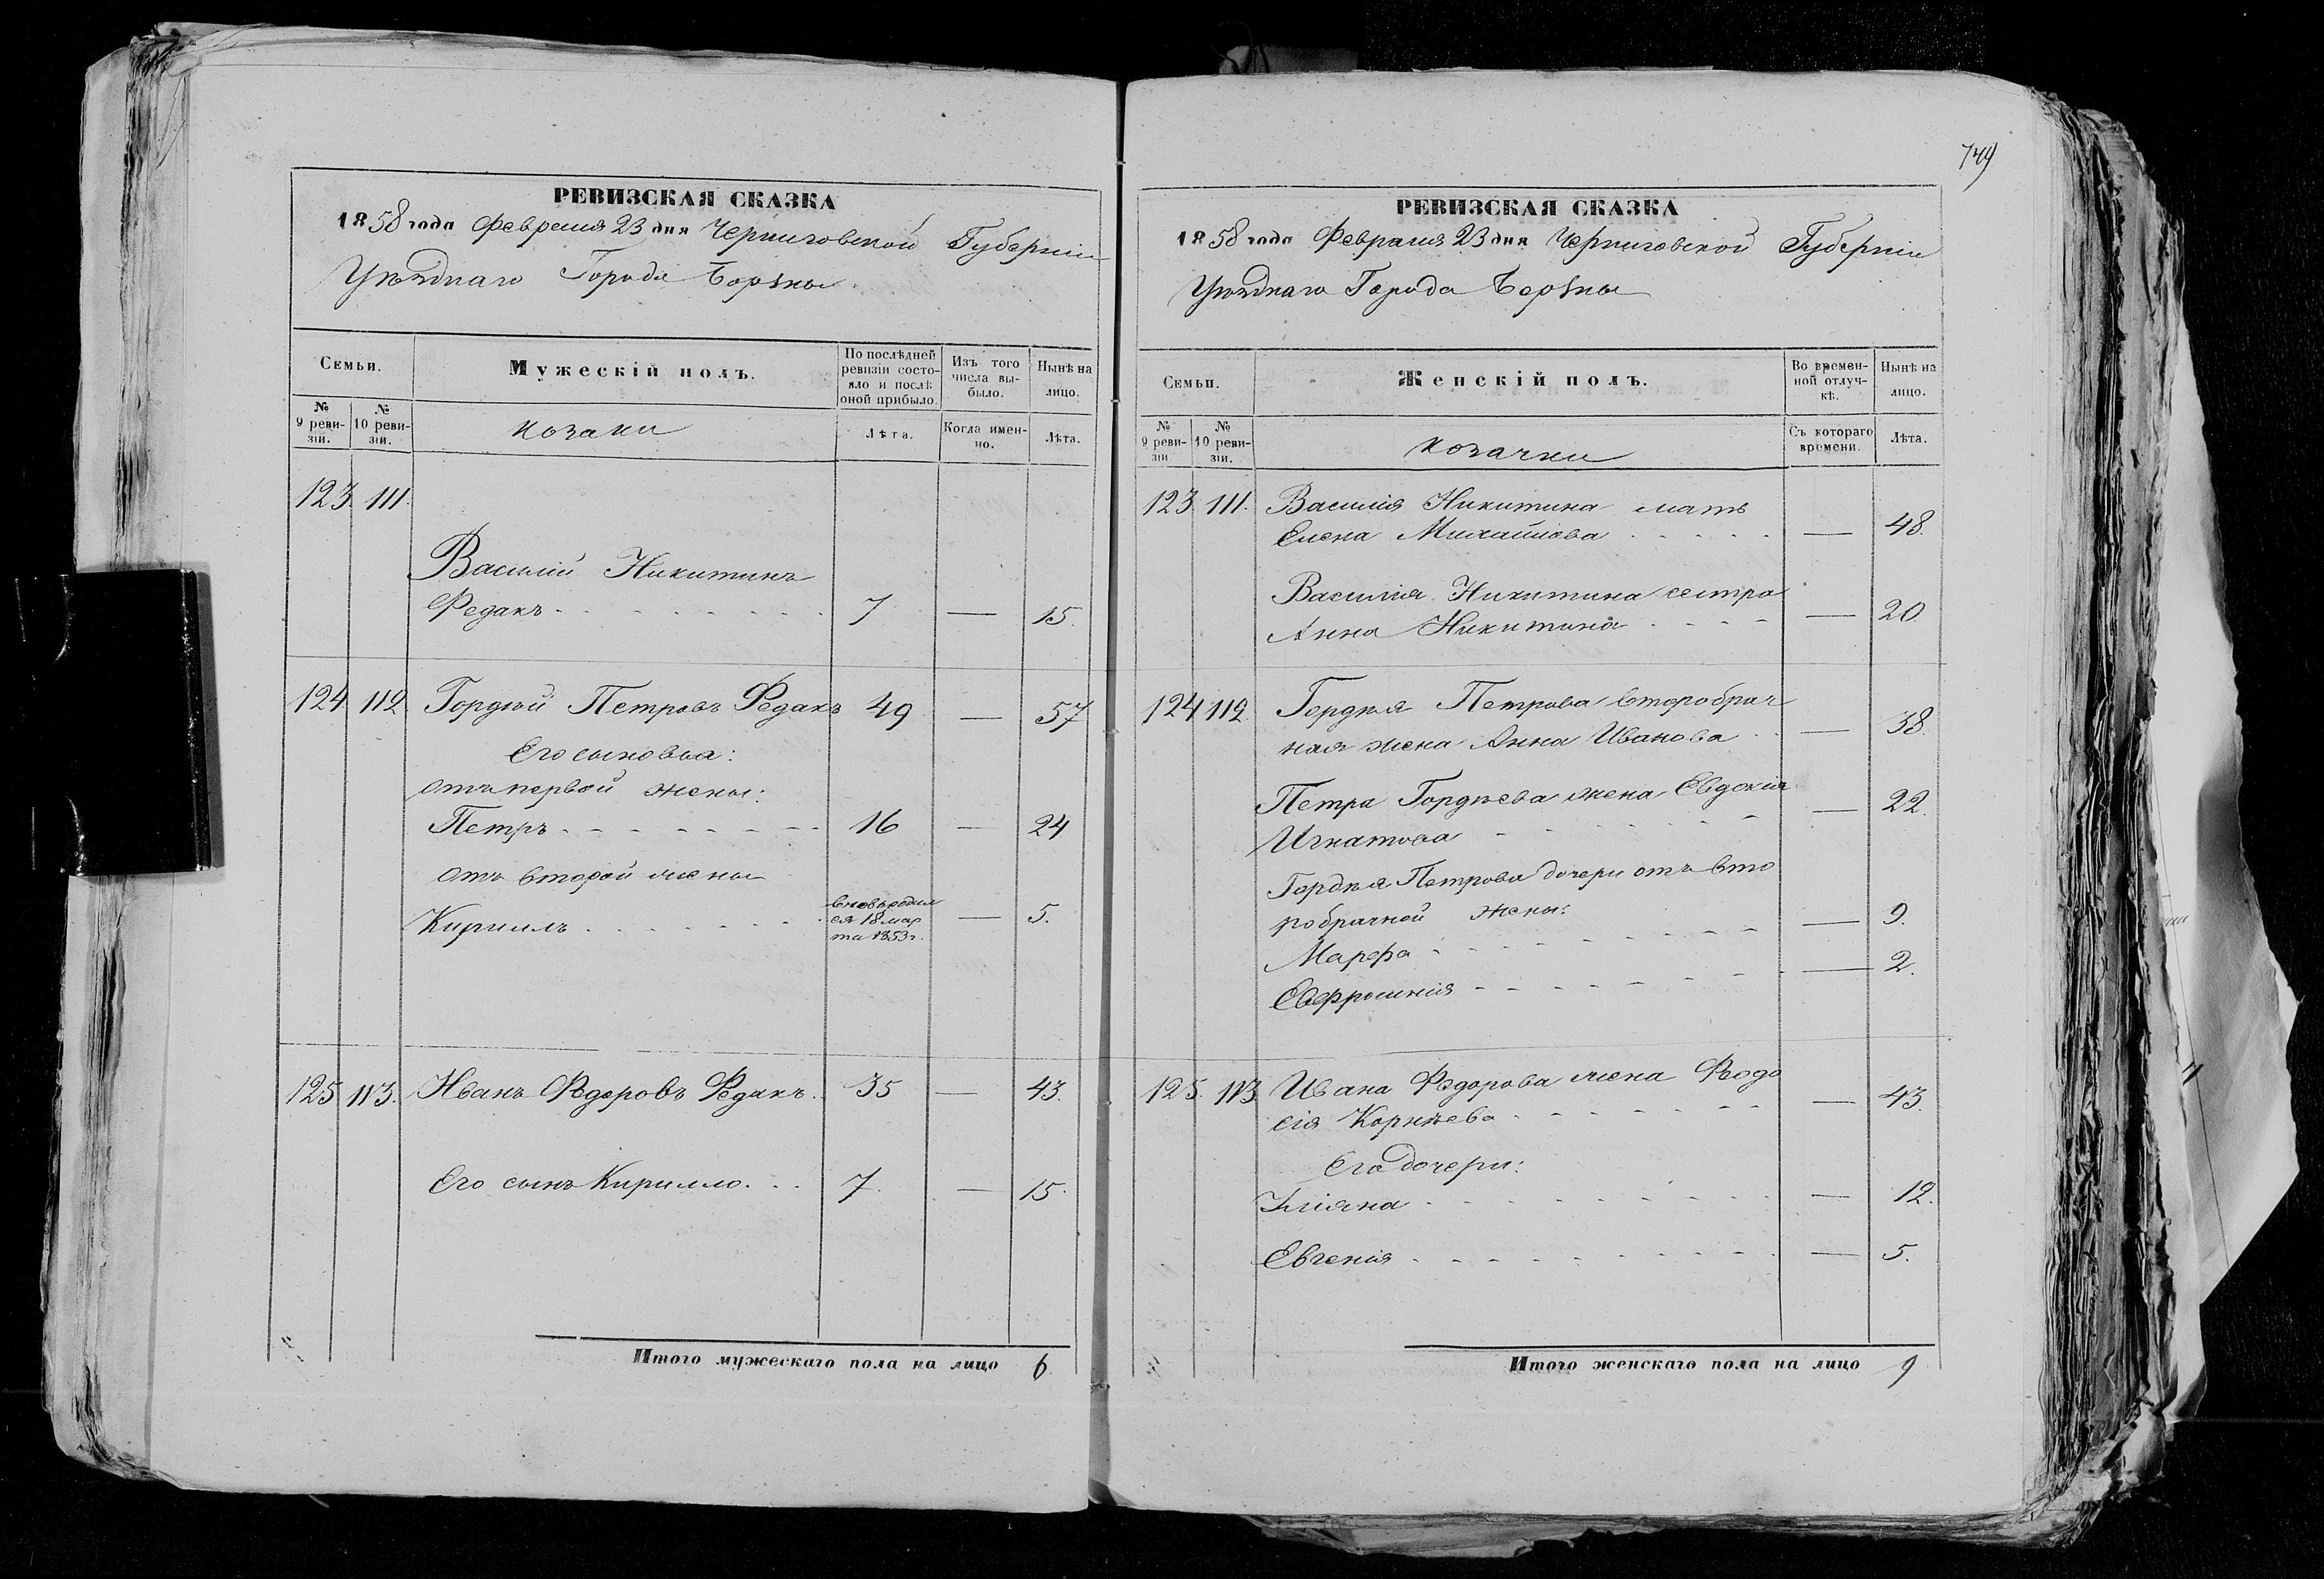 РЕВИЗСКАЯ СКАЗКА
1858 года Февраля 23 дня Черниговской Губерніи
Уѣзднаго Города Борзны
Семьи.
Мужескій полъ.
По послѣдней ревизіи состояло и послѣ оной прибыло.
Изъ того числа выбыло.
Нынѣ на лицо.
№ 9 ревизіи.
№ 10 ревизіи.
козаки
Лѣта.
Когда именно.
Лѣта.
123. 111.
Василій Никитинъ
Редакъ 7 — 15.
124 112 Гордѣй Петровъ Редакъ 49 — 57
Его сыновья:
отъ первой жены:
Петръ 16 — 24
отъ второй жены
Кириллъ вновь родил — 5.
ся 18 мар
та 1853 г.
125 113. Иванъ Федоровъ Редакъ. 35 — 43.
Его сынъ Кирилло. 7. — 15.
Итого мужескаго пола на лицо 6.
749
РЕВИЗСКАЯ СКАЗКА
1858 года Февраля 23 дня Черниговской Губерніи
Уѣзднаго Города Борзны
Семьи.
Женскій полъ.
Во временной отлучкѣ.
Нынѣ на лицо.
№ 9 ревизіи
№ 10 ревизіи.
козачки
Съ котораго времени.
Лѣта.
123. 111. Василія Никитина мать
Елена Михайлова — 48.
Василія Никитина сестра
Анна Никитина — 20.
124 112. Гордѣя Петрова второбрач
ная жена Анна Иванова — 38.
Петра Гордѣева жена Евдокія — 22.
Игнатова
Гордѣя Петрова дочери отъ вто
робрачной жены: — 9.
Марфа — 2.
Евфросинія
125. 113. Ивана Федорова жена Феодо
сія Корнѣева — 43.
Его дочери:
Уліяна — 12.
Евгенія — 5.
Итого женскаго пола на лицо 9